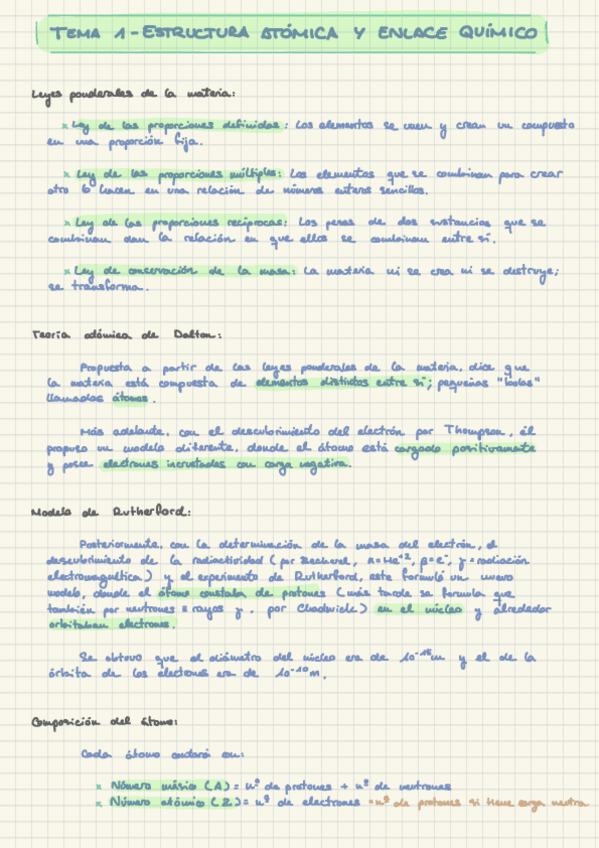 TEMA 1 - ESTRUCTURA ATÓMICA Y ENLACE QUÍMICO
Leyes ponderales de la materia:
x Ley de las proporciones definidas: Los elementos se unen y crean un compuesto
en una proporción fija.
x Ley de las proporciones múltiples: Los elementos que se combinan para crear
otro lo hacen en una relación de números enteros sencillos.
x Ley de las proporciones recíprocas: Los pesos de dos sustancias que se
combinan dan la relación en que ellos se combinan entre sí.
x Ley de conservación de la masa: La materia ni se crea ni se destruye;
se transforma.
Teoría atómica de Dalton:
Propuesta a partir de las leyes ponderales de la materia, dice que
la materia está compuesta de elementos distintos entre sí; pequeñas "bolas"
llamadas átomos.
Más adelante, con el descubrimiento del electrón por Thompson, él
propuso un modelo diferente, donde el átomo está cargado positivamente
y posee electrones incrustados con carga negativa.
Modelo de Rutherford:
Posteriormente, con la determinación de la masa del electrón, el
descubrimiento de la radioactividad (por Becherel, α=He⁺², β=e⁻, γ=radiación
electromagnética) y el experimento de Rutherford, este formuló un nuevo
modelo, donde el átomo constaba de protones (más tarde se formula que
también por neutrones = rayos γ, por Chadwick) en el núcleo y alrededor
orbitaban electrones.
Se obtuvo que el diámetro del núcleo era de 10⁻¹⁵m y el de la
órbita de los electrones era de 10⁻¹⁰m.
Composición del átomo:
Cada átomo en:
x Número másico (A) = nº de protones + nº de neutrones
x Número atómico (Z) = nº de electrones = nº de protones si tiene carga neutra